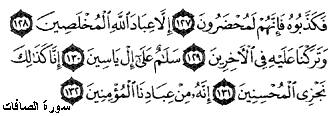 فَكَذَّبُوهُ فَإِنَّهُمْ لَمُحْضَرُونَ ١٢٧ إِلَّا عِبَادَ ٱللَّهِ ٱلْمُخْلَصِينَ ١٢٨
وَتَرَكْنَا عَلَيْهِ فِى ٱلْآخِرِينَ ١٢٩ سَلَٰمٌ عَلَىٰٓ إِلْ يَاسِينَ ١٣٠ إِنَّا كَذَٰلِكَ
نَجْزِى ٱلْمُحْسِنِينَ ١٣١ إِنَّهُۥ مِنْ عِبَادِنَا ٱلْمُؤْمِنِينَ ١٣٢
سورة الصافات